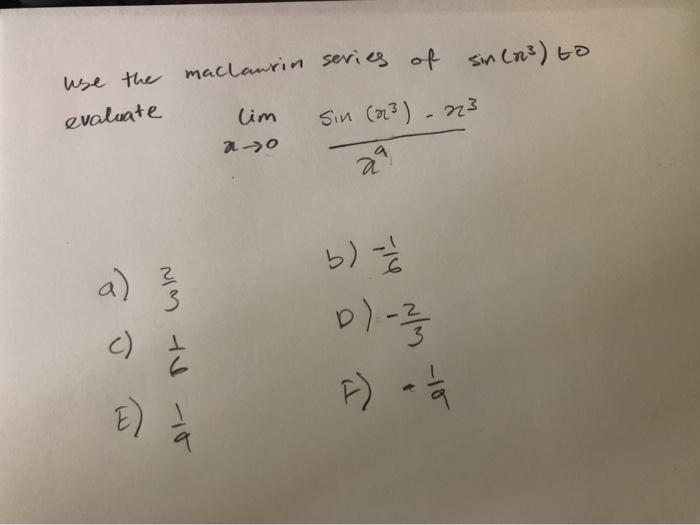 use the maclaurin series of sin(x³) to
evaluate lim x→0 sin(x³) - x³ / x⁹
a) 2/3 b) -1/6
c) 1/6 D) -2/3
E) 1/9 F) -1/9